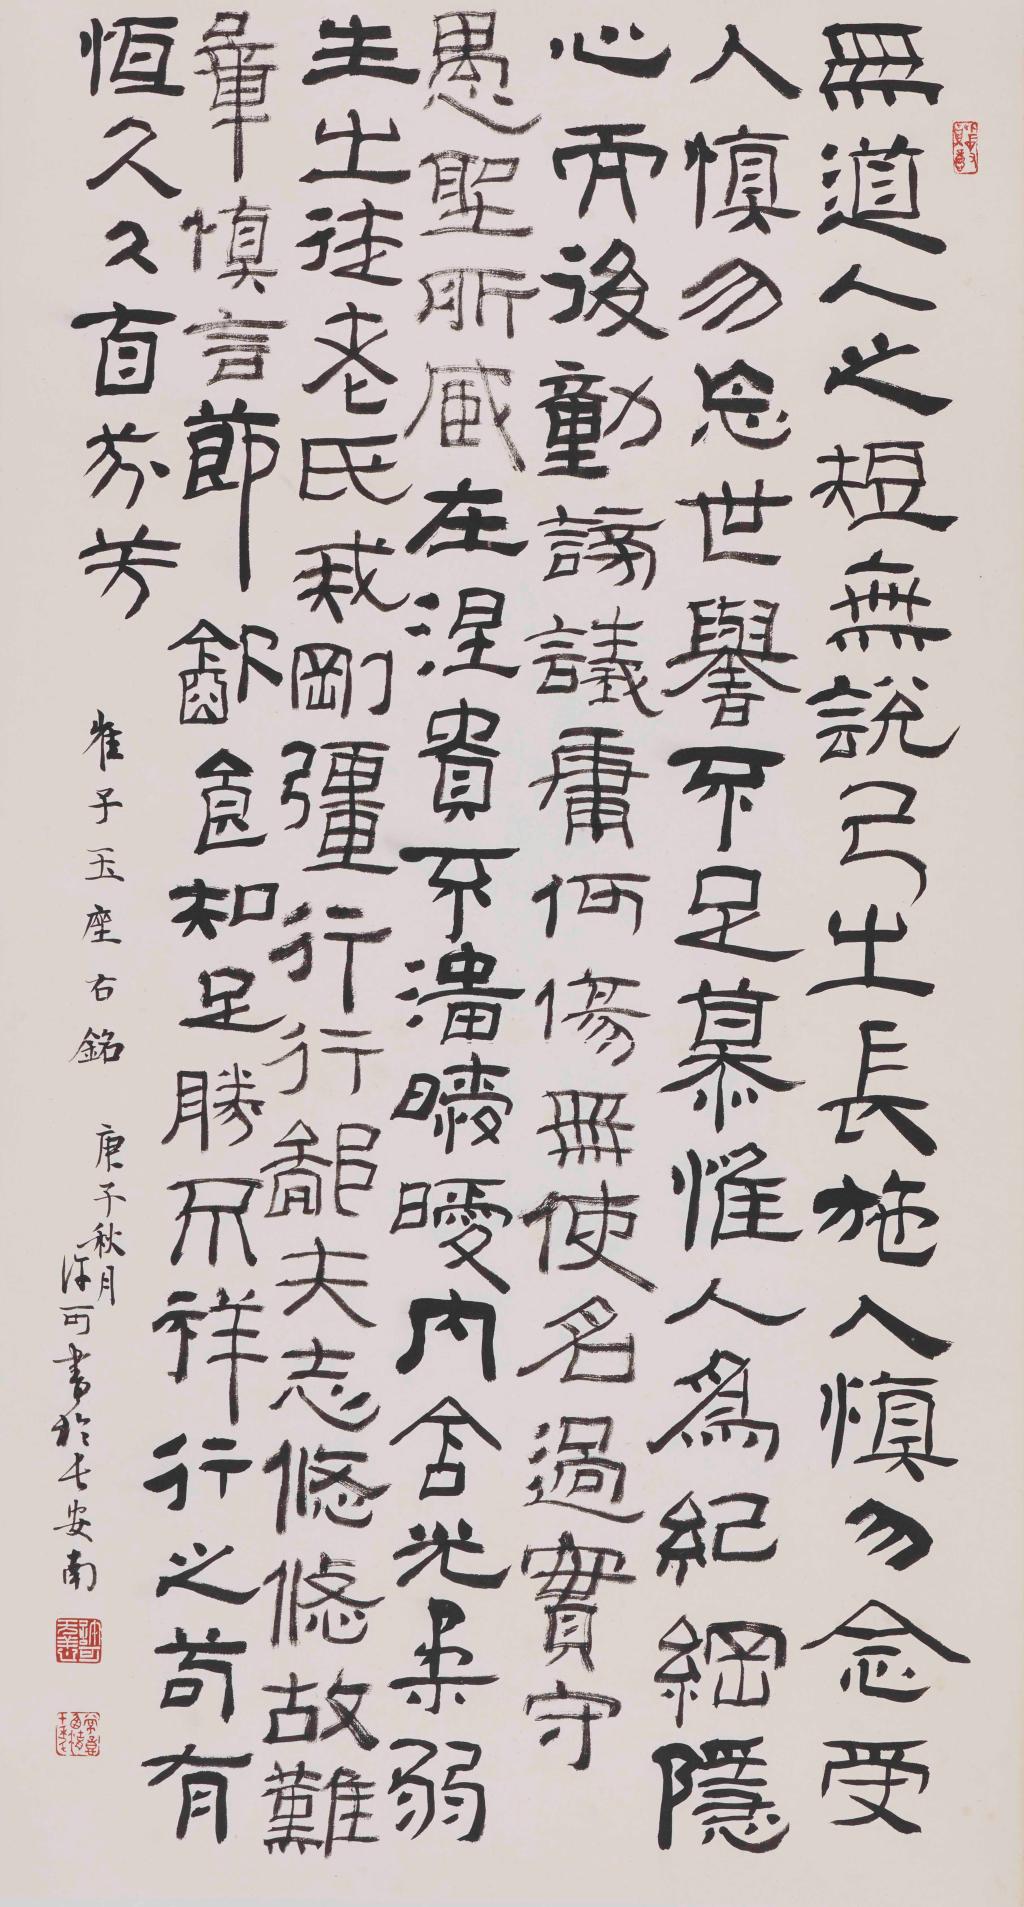 無道人之短無說己之長施人慎勿念受
人慎勿忘世譽不足慕惟人爲紀綱隱
心而後動謗議庸何傷無使名過實守
愚聖所臧在涅貴不淄曖曖內含光柔弱
生之徒老氏戒剛彊行行鄙夫志悠悠故難
量慎言節飲食知足勝不祥行之苟有
恆久久自芬芳
崔子玉座右銘 庚子秋月
許可書於長安南